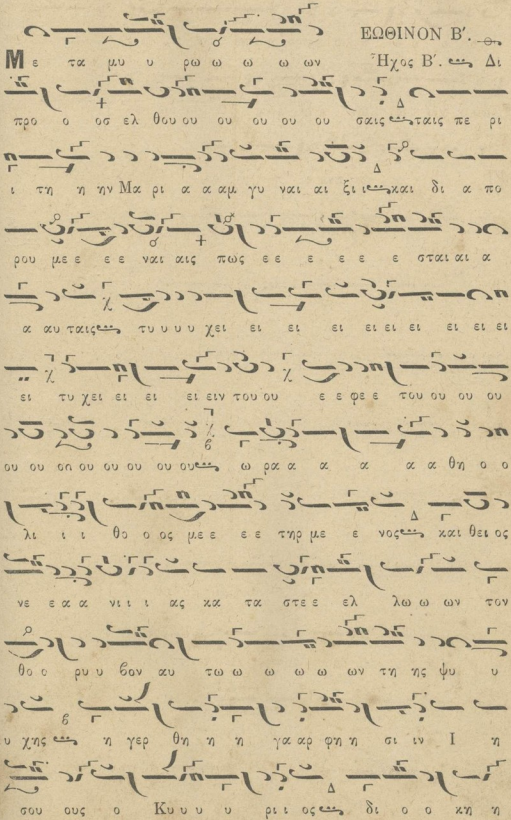 ΕΩΘΙΝΟΝ Β΄.
Με τα μυ υ ρω ω ω ω ων Ἦχος Β΄. Δι
προ ο οσ ελ θου ου ου ου ου ου σαις ταις πε ρι
ι τη η ην Μα ρι α α αμ γυ ναι αι ξι ι και δι α πο
ρου με ε ε ε ναι αις πως ε ε ε ε ε ε σται αι α
α αυ ταις τυ υ υ υ χει ει ει ει ει ει ει ει ει ει
ει τυ χει ει ει ει ειν του ου ε ε φε ε του ου ου ου
ου ου ου ου ου ου ου ω ρα α α α α α θη ο ο
λι ι ι θο ο ος με ε ε ε τηρ με ε νος και θει ος
νε ε α α νι ι ι ας κα τα στε ε ελ λω ω ων τον
θο ο ρυ υ βον αυ τω ω ω ω ω ων τη ης ψυ υ
υ χης η γερ θη η η γα αρ φη η σι ιν Ι η
σου ους ο Κυ υ υ υ ρι ι ος δι ο ο κη η